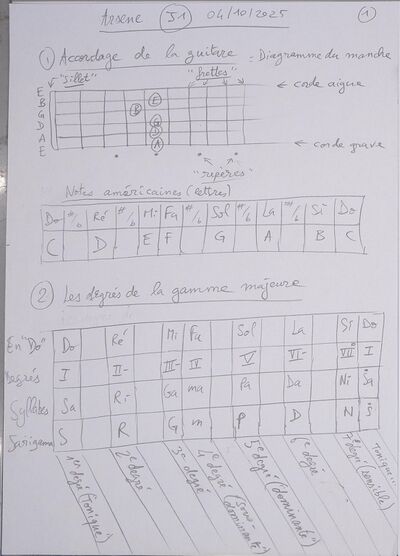 Arsene S1 04/10/2025 1
1 Accordage de la guitare = Diagramme du manche
"Sillet" "frettes" ← corde aigüe
E
B
G
D
A
E
E
B
G
D
A
← corde grave
"repères"
Notes américaines (lettres)
Do #/b Ré #/b Mi Fa #/b Sol #/b La #/b Si Do
C D E F G A B C
2 Les degrés de la gamme majeure
En "Do" Do Ré Mi Fa Sol La Si Do
Degrés I II- III- IV V VI- VII I
Syllabes Sa Ri Ga ma Pa Da Ni Sa
Sarigama S R G m P D N S
1er degré (Tonique)
2e degré
3e degré
4e degré (sous-dominante)
5e degré (dominante")
6e degré
7e degré (sensible)
Tonique